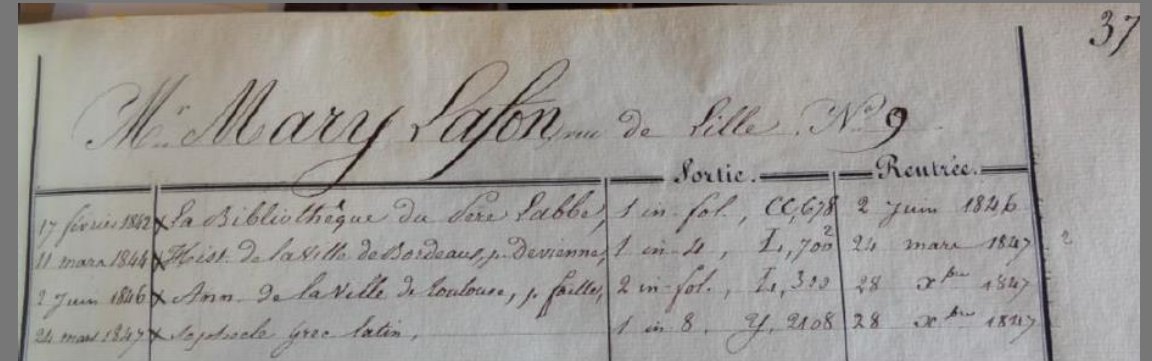 37
Mr. Mary Lafon, rue de Lille. No 9
Sortie. Rentrée.
17 février 1842 x La Bibliothèque du Père Labbe, 1 in-fol., CC, 678 2 Juin 1846
11 mars 1844 x Hist. de la ville de Bordeaux, p. Devienne, 1 in-4, L, 700² 24 mars 1847
2 Juin 1846 x Ann. de la Ville de Toulouse, p. faille, 2 in-fol., L, 300 28 xbre 1847
24 mars 1847 x Sophocle grec latin, 1 in 8, Y, 2108 28 xbre 1847